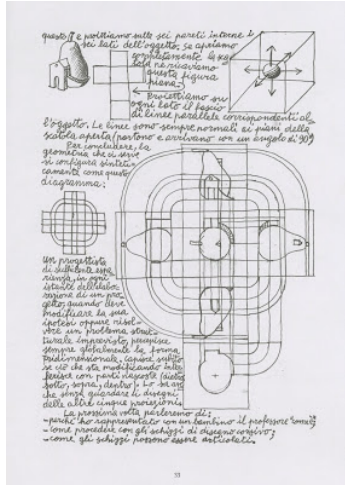 questo e proiettiamo sulle sei pareti interne i
sei lati dell'oggetto. Se apriamo
completamente la sca
tola ne ricaviamo
questa figura
piana.
Proiettiamo su
ogni lato il fascio
di linee parallele corrispondenti al
l'oggetto. Le linee sono sempre normali ai piani della
scatola aperta (partono e arrivano con un angolo di 90°)
Per concludere, la
geometria che ci serve
si configura sinteti-
camente come questo
diagramma:
Un progettista
di sufficiente espe
rienza, in ogni
istante dell'elabo-
razione di un pro-
getto, quando deve
modificare la sua
ipotesi oppure risol-
vere un problema strut-
turale imprevisto, percepisce
sempre globalmente la forma
tridimensionale. Capisce subito
se ciò che sta modificando inter
ferisce con parti nascoste (dietro,
sotto, sopra, dentro). Lo sa an
che senza guardare i disegni
delle altre cinque proiezioni.
La prossima volta parleremo di:
-perché ho rappresentato con un bambino il professore
-come procedere con gli schizzi di disegno corsivo;
-come gli schizzi possono essere articolati.